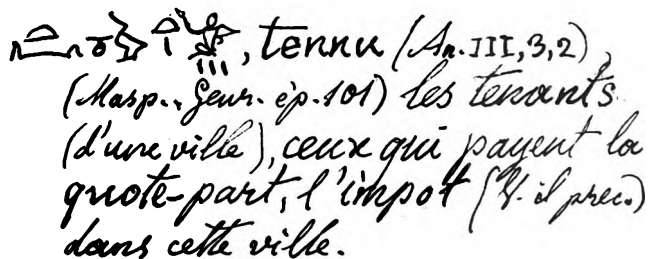 , tennu (An. III, 3, 2),
(Masp., Genr. ép. 101) les tenants
(d'une ville), ceux qui payent la
quote-part, l'impot (V. il prec.)
dans cette ville.